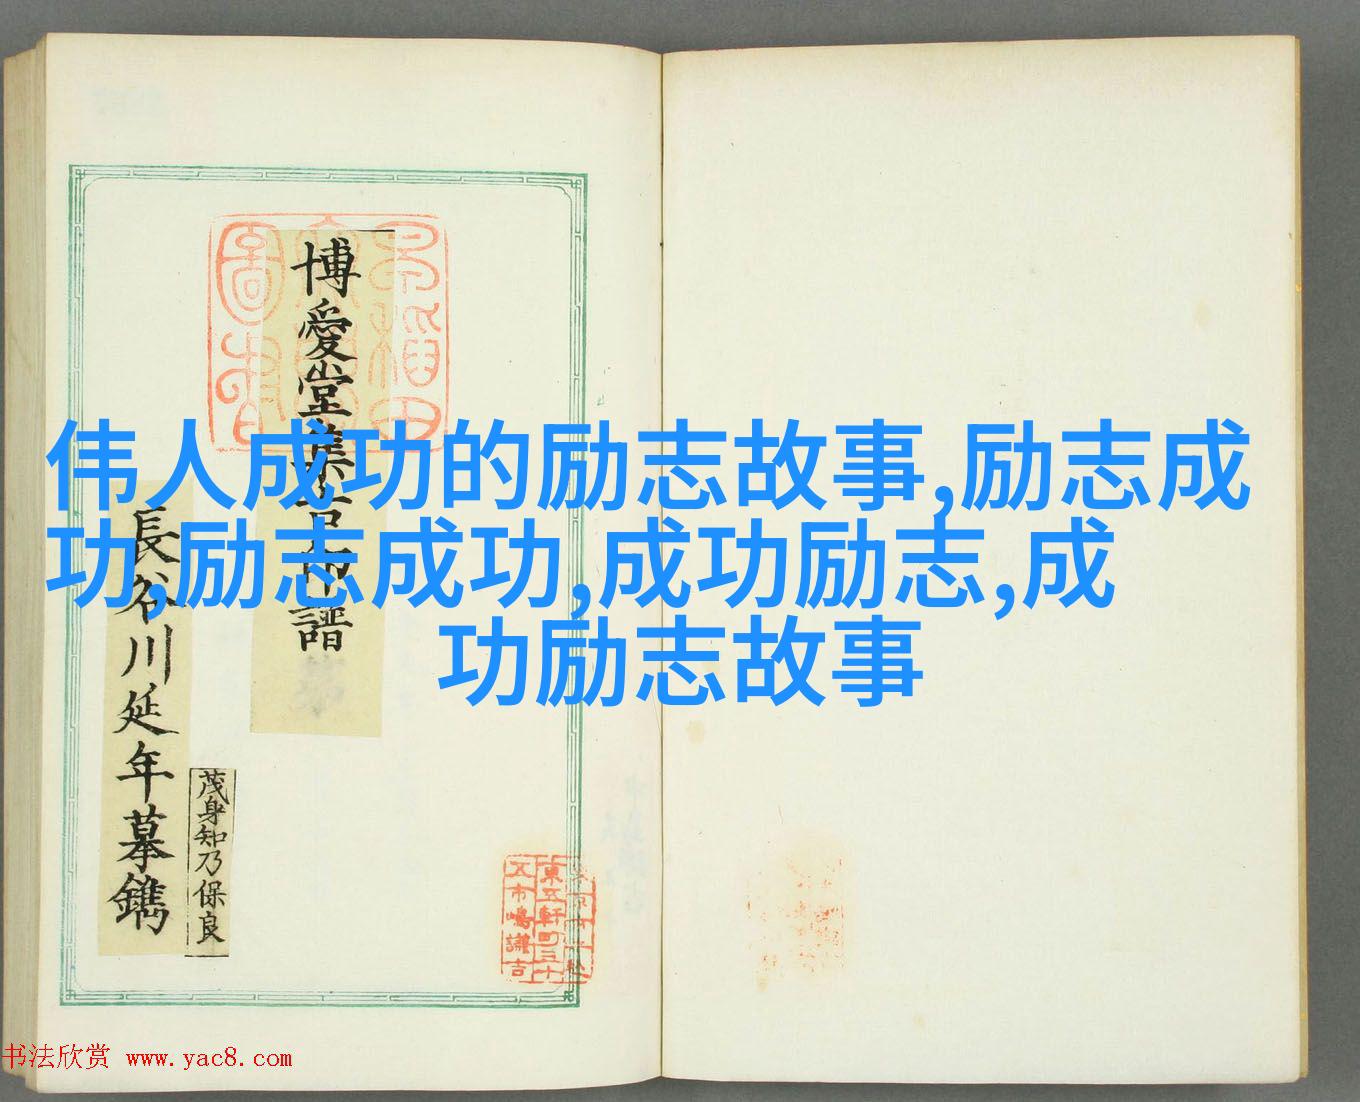 伟人成功的励志故事,励志成
功,励志成功,成功励志,成
功励志故事
博愛堂集古印譜
長谷川延年摹鐫
茂身知乃保良
東五軒町三十
五市嶋謙吉
书法欣赏 www.yac8.com